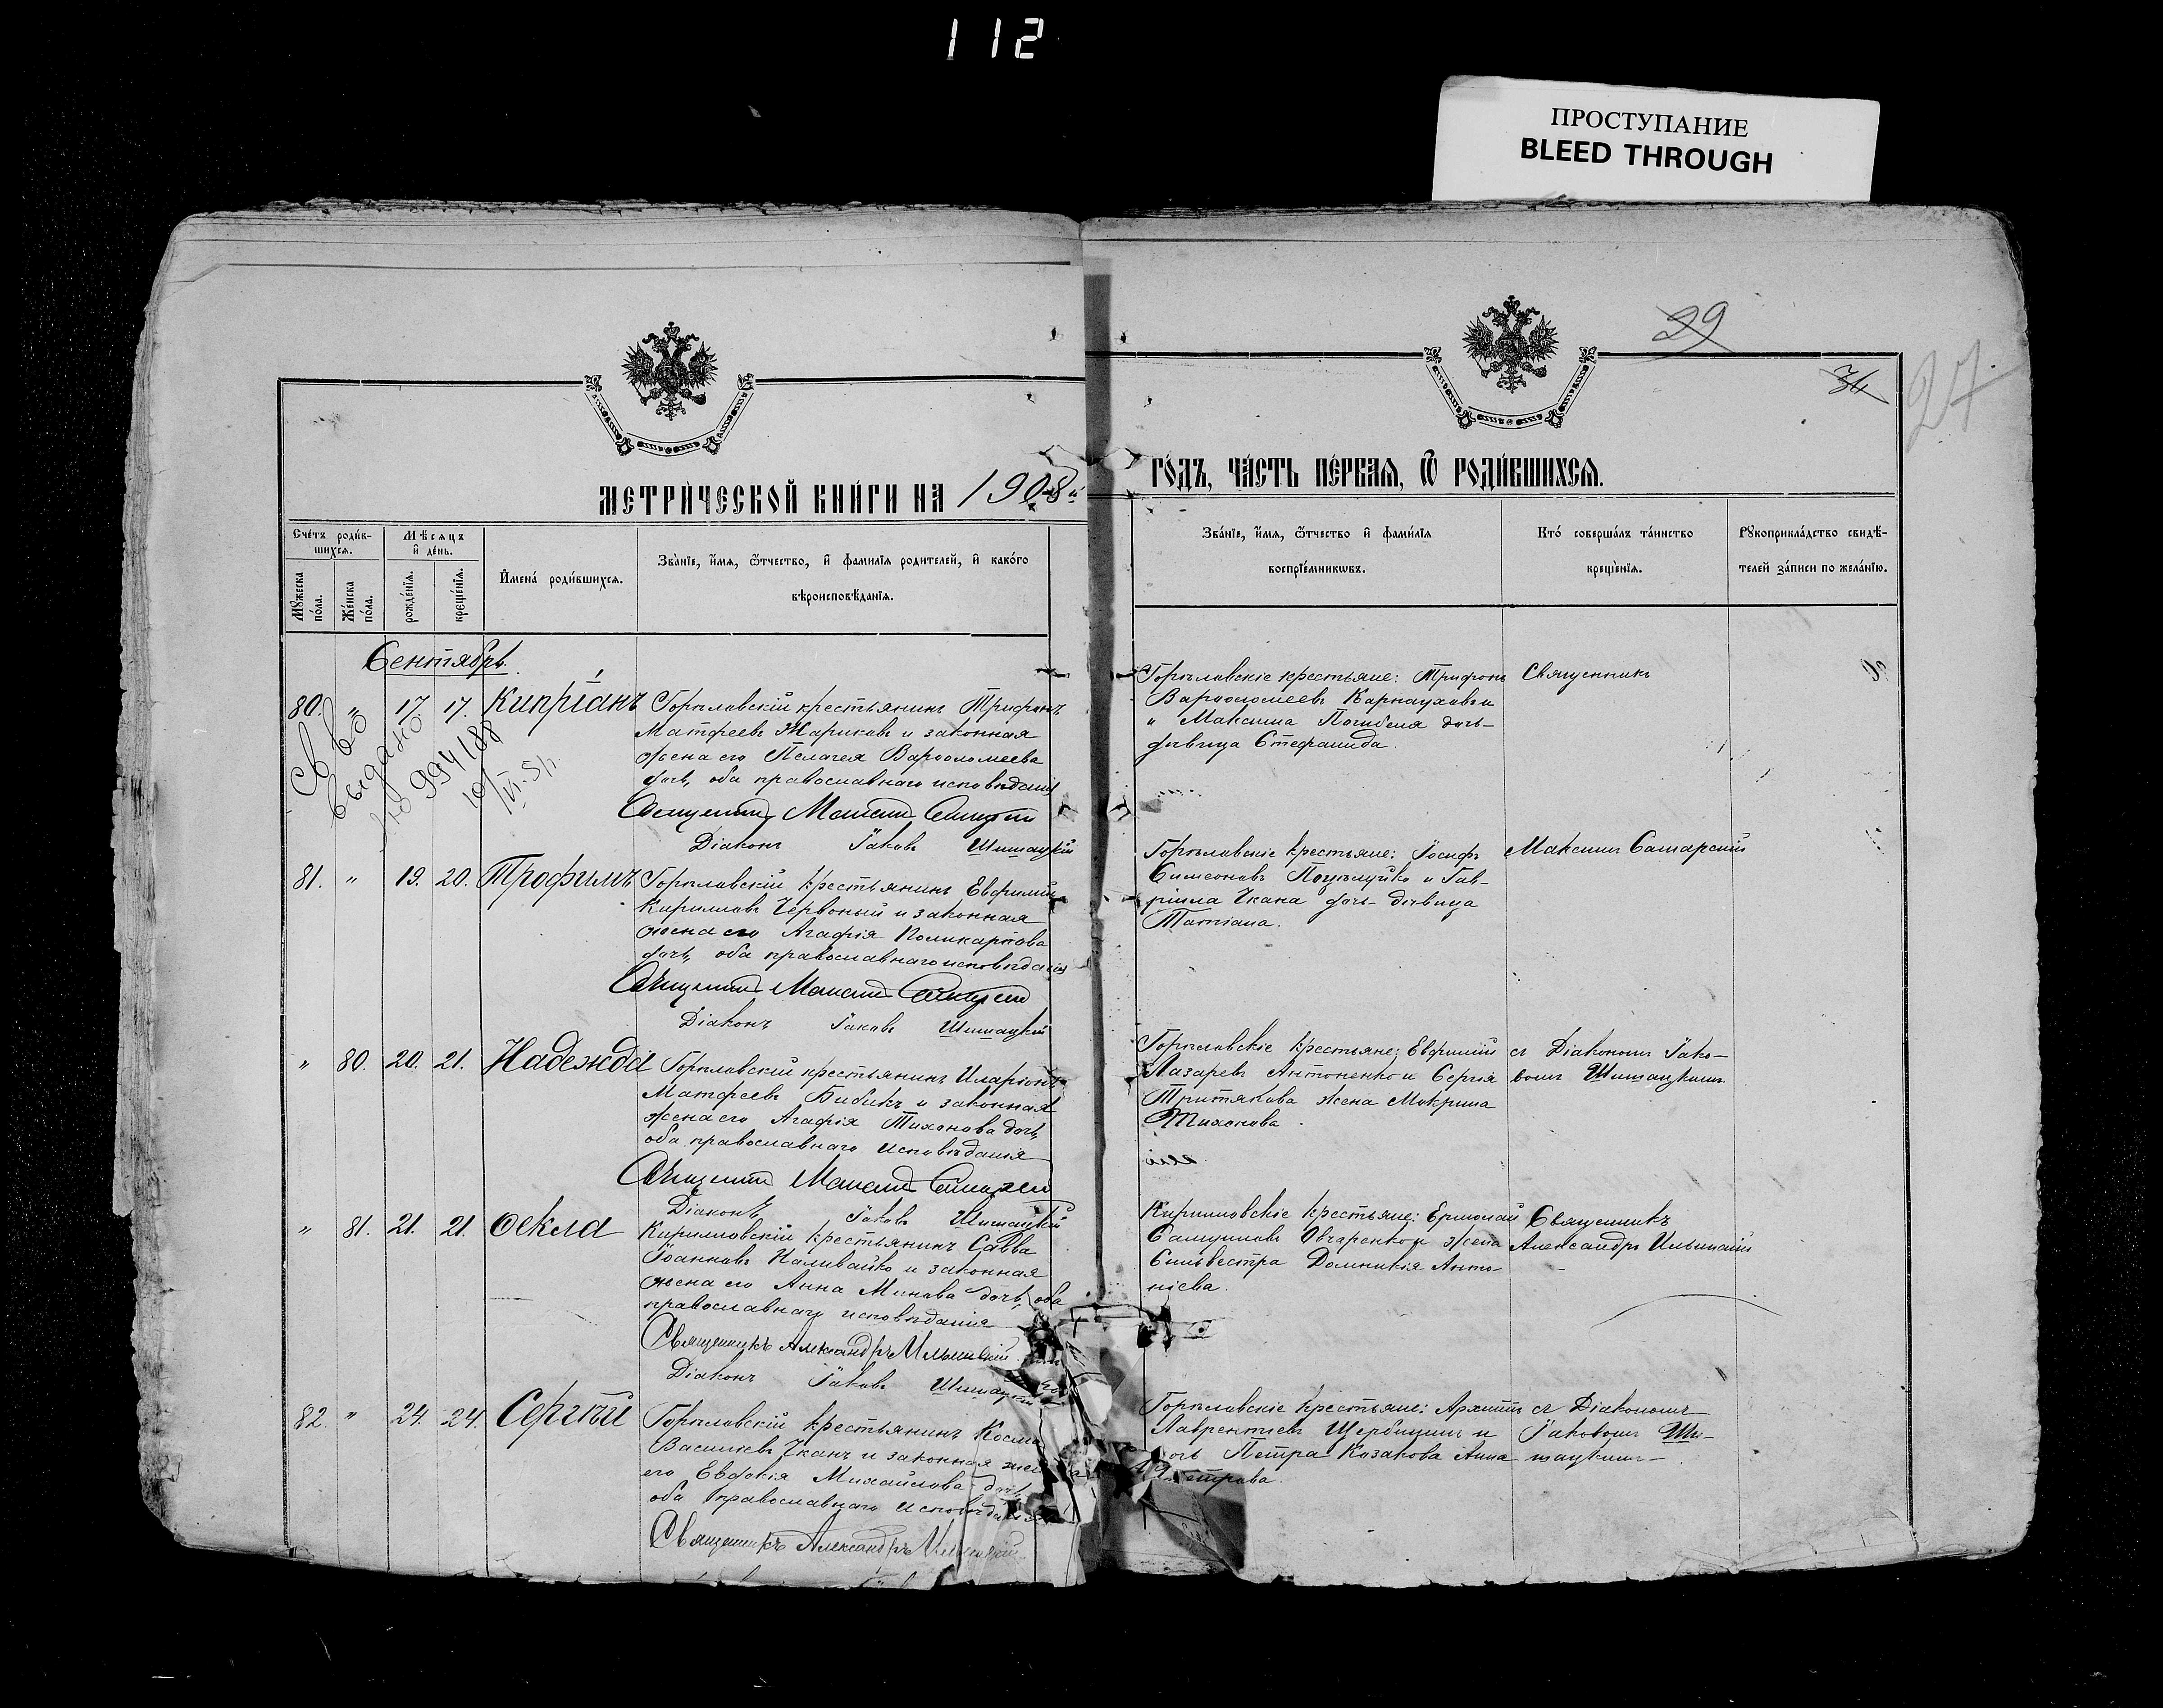 112
ПРОСТУПАНИЕ
BLEED THROUGH
29
34
27.
МЕТРИ́ЧЕСКОЙ КНИ́ГИ НА 1908й
ГО́ДЪ, ЧА́СТЬ ПЕ́РВАЯ, Ѿ РОДИ́ВШИХСЯ.
Сче́тъ роди́в-
шихся.
Мѣ́сяцъ
и҆ де́нь.
Мꙋ́жеска
по́ла.
Же́нска
по́ла.
рожде́нїя.
креще́нїя.
И҆мена̀ роди́вшихся.
Зва́нїе, и҆́мя, ѻ҆́тчество, и҆ фами́лїя родителей, и҆ како́го
вѣроисповѣ́данїя.
Зва́нїе, и҆́мя, ѻ҆́тчество и҆ фами́лїя
воспрїе́мникѡвъ.
Кто̀ соверша́лъ та́инство
креще́нїя.
Рꙋкоприкла́дство свидѣ́-
телей за́писи по жела́нїю.
Сентябрь.
80. " 17 17. Кипріанъ
Горѣловскій крестьянинъ Трифонъ
Матфеевъ Жариковъ и законная
жена его Пелагея Варѳоломеева
дочь, оба православнаго исповѣданія
Діаконъ Іаковъ Шишацкій
Горѣловскіе крестьяне: Трифонъ
Варѳоломеевъ Карнауховъ и
и Максима Погибеля дочь-
дѣвица Стефанида.
Священникъ
Св во
выдано
994/88
81. " 19. 20. Трофимъ
Горѣловскій крестьянинъ Евфимій
Кирилловъ Червоный и законная
жена его Агафія Поликарпова
дочь, оба православнаго исповѣданія
Діаконъ Іаковъ Шишацкій
Горѣловскіе крестьяне: Іосифъ
Симеоновъ Поцѣлуйко и Гав-
ріила Чкана дочь- дѣвица
Татіана.
Максимъ Самарскій
" 80. 20. 21. Надежда
Горѣловскій крестьянинъ Иларіонъ
Матфеевъ Бибикъ и законная
жена его Агафія Тихонова дочь,
оба православнаго исповѣданія
Діаконъ Іаковъ Шишацкій
Горѣловскіе крестьяне: Евфимій
Лазаревъ Антоненко и Сергія
Третякова жена Мокрина
Тихонова.
съ Діакономъ Іако-
вомъ Шишацкимъ
" 81. 21. 21. Ѳекла
Кирилловскій крестьянинъ Савва
Іоанновъ Наливайко и законная
жена его Анна Минова дочь, оба
православнаго исповѣданія
Священникъ Александръ Ильинскій
Діаконъ Іаковъ Шишацкій
Кирилловскіе крестьяне: Ермолай
Самуиловъ Овчаренко и жена
Сильвестра Домникія Анто-
ніева.
Священникъ
Александръ Ильинскій
82. " 24. 24. Сергѣй
Горѣловскій крестьянинъ Косма
Василіевъ Чканъ и законная жена
его Евдокія Михайлова дочь,
оба православнаго исповѣданія
Священникъ Александръ Ильинскій
Горѣловскіе крестьяне: Архипъ
Лаврентіевъ Щербининъ и
дочь Петра Казакова Анна
Петрова.
съ Діакономъ
Іаковомъ Ши-
шацкимъ